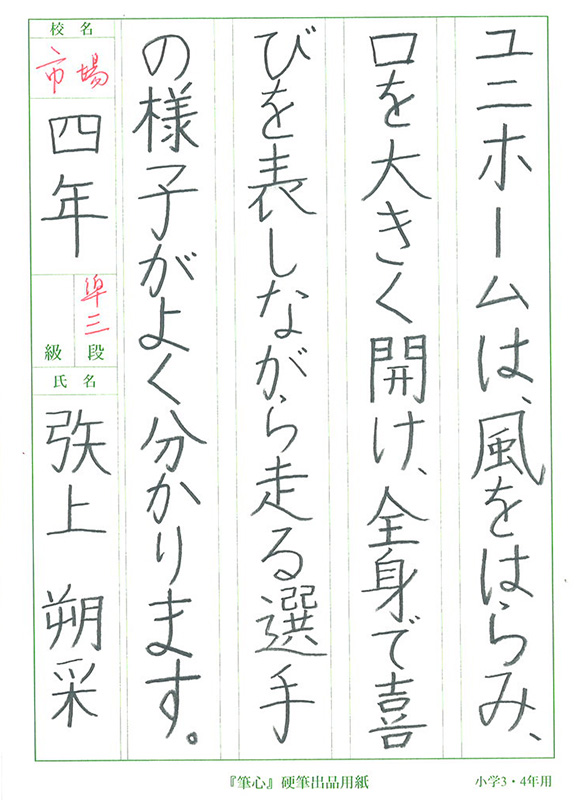 ユニホームは、風をはらみ、
口を大きく開け、全身で喜
びを表しながら走る選手
の様子がよく分かります。
校名
市場
四年
準三
段
級
氏名
弥上 朔采
『筆心』硬筆出品用紙
小学3・4年用